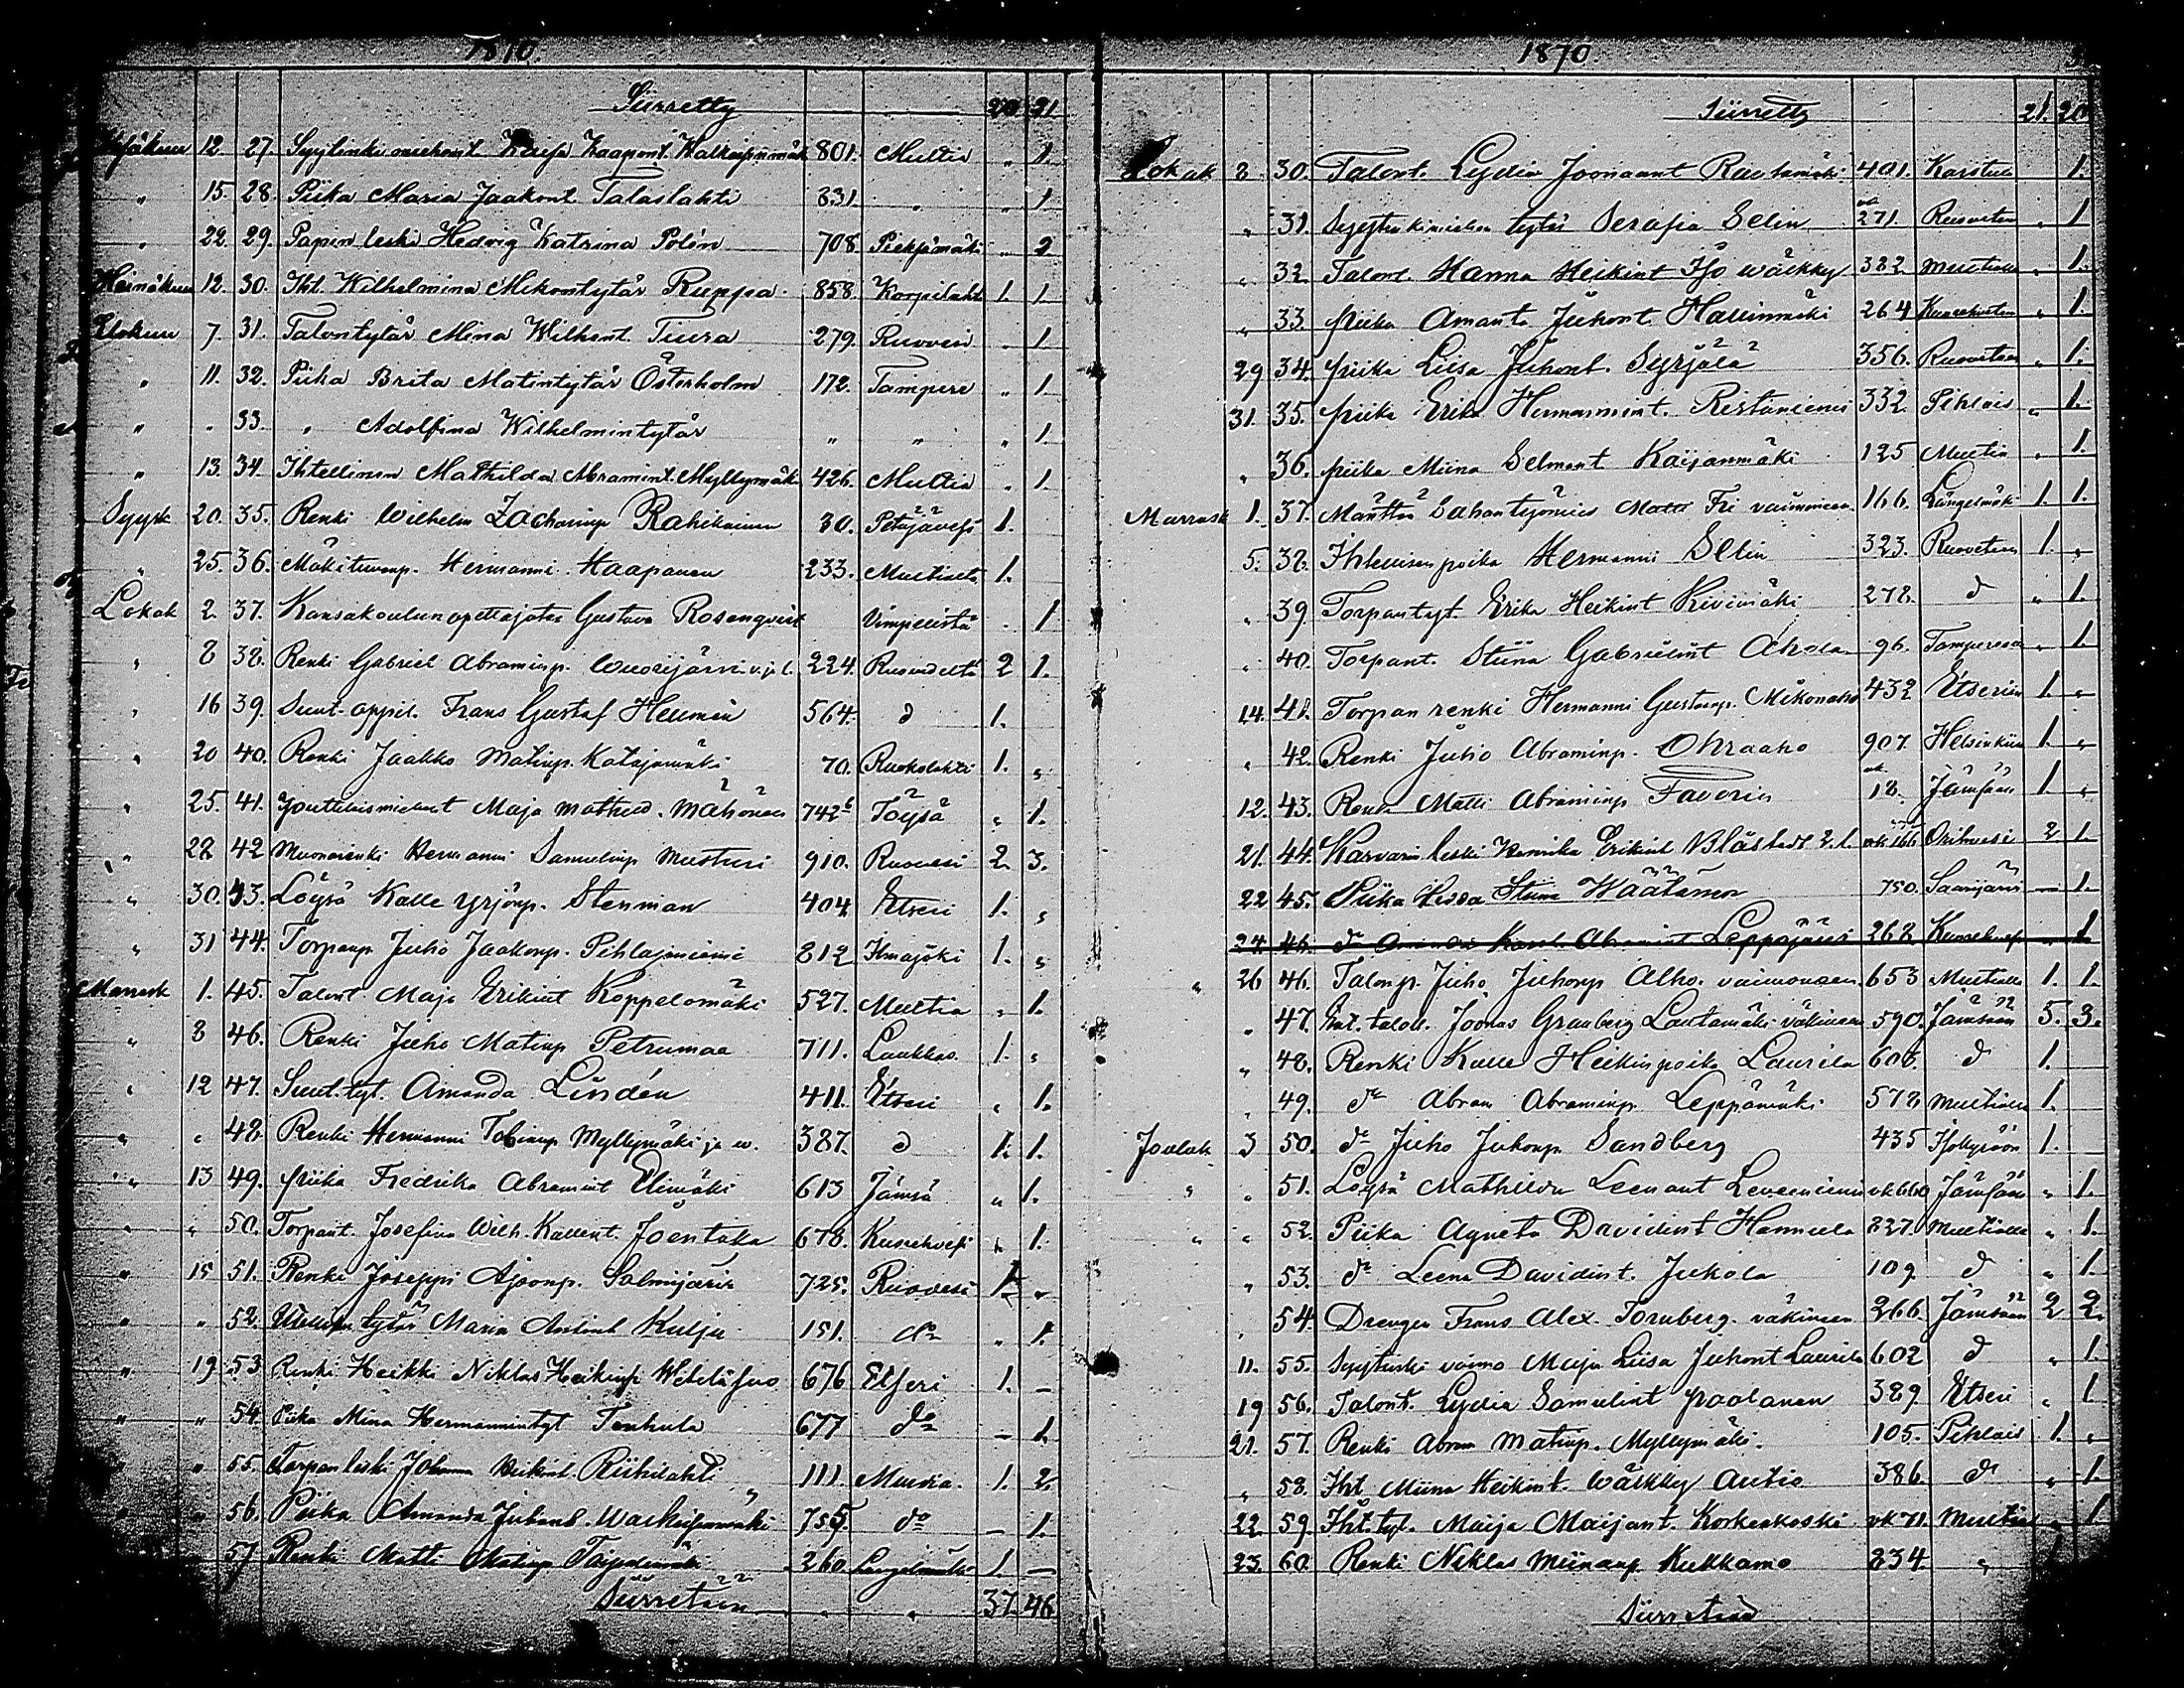 1870.
Siirretty 20 21
12. 27. 801. Multia " 1.
" 15. 28. Piika Maria Jaakont. Talaslahti 831. " " 1.
" 22. 29. Papin leski Hedvig Katrina Polén 708. Pieksämäki " 2
Heinäkuu 12. 30. Iht. Wilhelmina Mikontytär Ruppa 858. Korpilaht 1. 1.
Elokuu 7. 31. Talontytär Mina Wilhent. Tiura 279. Ruovesi . 1
" 11. 32. Piika Brita Matintytär Österholm 172. Tampere " 1.
" " 33. " Adolfina Wilhelmintytär " " " 1.
" 13. 34. Ihtellinen Mathilda Abramint. Myllymäki 426. Multia . 1.
Syysk 20. 35. Renki Wilhelm Zacharinp. Rahikainen 30. Petäjävesi 1.
" 25. 36. Mäkituvanp. Hermanni Haapanen 233. Multialta 1.
Lokak 2. 37. Kansakoulunopettajatar Gustava Rosenqvist Vimpelistä . 1
" 8 38. Renki Gabriel Abraminp. Wuorijärvi v. j. l. 224. Ruovedeltä 2 1.
" 16 39. Suut. oppil. Frans Gustaf Helimén 564. d 1.
" 20 40. Renki Jaakko Matinp. Katajamäki 70. Ruokolahti 1. "
" 25. 41. Maja Mathild. Mähönen 742 Töysä " 1.
" 28 42 Muonarenki Hermanni Samulinp Musturi 910. Ruovesi 2. 3.
" 30. 43. Löysä Kalle Yrjönp. Stenman 404 Etseri 1. "
" 31 44. Torpanp. Juho Jaakonp. Pihlajaniemi 812 Ilmajoki 1. "
Marrask 1. 45. Talont. Maja Erikint Koppelomäki 527. Multia " 1.
" 8 46. Renki Juho Matinp Petrumaa 711. Laukkaa 1. "
" 12 47. Suut. tyt. Amanda Lindén 411. Etseri " 1.
" " 48. Renki Hermanni Tobianp Myllymäki ja w. 387. d 1. 1.
" 13 49. piika Fredrika Abramint Elimäki 613 Jämsä " 1.
" " 50. Torpant. Josefina Wilh. Kallent. Joentaka 678. Kuurehvesi " 1.
" 15 51. Renki Joseppi Ajoonp. Salmijärvi 725. Ruovesi 1. "
" " 52. tytär Maria Antint Kulju 151. do " 1.
" 19 53 Renki Heikki Niklas Heikinp. 676 Etseri 1. –
" " 54. Piika Mina Hermannintyt Tenhula 677 do – 1.
" " 55. Torpan leski Johanna Heikint. Riihilahti 111. Multia. 1. 2.
" " 56. Piika Amanda Juhant. 755. do – 1.
57 Renki Matti Matinp. 260. Längelmäki 1. –
Siirretään " " 37. 46
1870.
Siirretty 21. 20
Lokak 8 30. Talont. Lydia Joonaant Rautamäki 401. Karstula 1.
" 31. tytär Serafia Selin 271. Ruoveten " 1.
" 32. Talont. Hanna Heikint Iso wäkky 382. Multialle " 1.
" 33. piika Amanta Juhont. Hallinmäki 264 " 1.
29 34. piika Liisa Juhont. Syrjälä 356. Ruoveteen " 1.
31. 35. piika Erika Hermannint. Ristaniemi 332. Pihlais " 1.
" 36. piika Miina Selmant Kaijanmäki 125 Multia . 1.
Marrask 1. 37. Mänttä Sahan työmies Fri vaimoineen 166. Längelmäki 1. 1.
5. 38. Ihtellisenpoika Hermanni Selin 323. Ruoveteen 1. "
" 39. Torpantyt. Erika Heikint Kivimäki 278. d " 1.
" 40. Torpant. Stiina Gabrielint Ahola 96. Tampereen " 1.
14. 41. Torpan renki Hermanni Gustavp. Mikonaho 432 Etseriin 1. "
" 42. Renki Juho Abraminp. Ohraaho 907. Helsinkiin 1. "
12. 43. Renki Matti Abraminp Favorin 18. Jämsään 1. "
21. 44. Karvarin leski Henrika Erikint Blåstedt 2. l. vk 166 Orihvesi 2 1.
22 45. Piika Stiina Wäätänen 750. Saarijärvi – 1.
24 46. d Abramint Leppäjärvi 268. " 1
" 26 46. Talonp. Juho Juhonp Alho. vaimoneen 653 Multialle 1. 1.
" 47. Joonas Granberg Lautamäki väkineen 590. Jämsään 5. 3.
" 48. Renki Kalle Heikinpoika Laurila 608. d 1.
" 49. do Abram Abraminp. Leppämäki 578. Multialle 1.
Jouluk 3 50. do Juho Juhonp. Sandberg 435 Isokyröön 1.
" " 51. Löysä Mathilda Leenant Leveeniemi vk 660 Jämsään " 1.
" " 52. Piika Agneta Davidint Hannula 827. Multialle " 1.
" 53. do Leena Davidint. Jukola 109. d " 1.
" 54. Drengen Frans Alex. Tornberg. väkineen 266. Jämsään 2 2.
11. 55. vaimo Maija Liisa Juhont Laurila 602 d " 1.
19 56. Talont. Lydia Samulint paalanen 389. Etseri " 1
21. 57. Renki Abram Matinp. Myllymäki. 105. Pihlais 1. "
" 58. Iht Miina Heikint. Wäkky Autio 386. do " 1
22 59. Iht. tyt. Maija Maijant. Korkeakoski vk 71. Multia " 1
23. 60. Renki Niklas Miinanp. Kukkamo 834. "
Siirretään